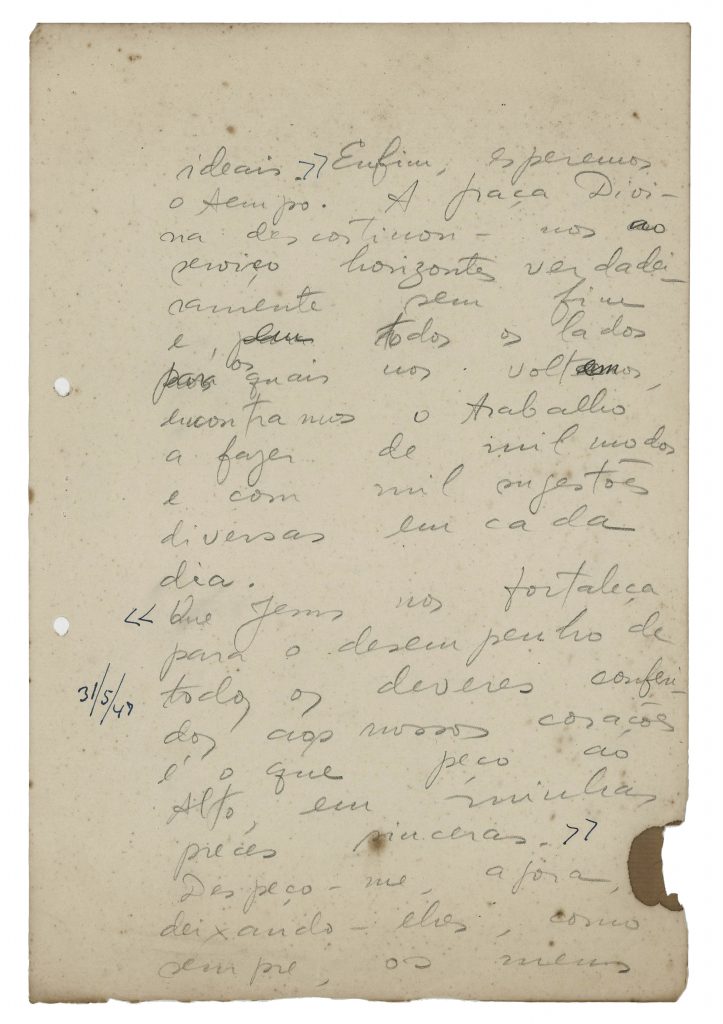 ideais. >> Enfim, esperemos
o tempo. A graça Divi-
na descortinou-nos ao
serviço horizontes verdadei-
ramente sem fim
e, em todos os lados
para os quais nos voltemos,
encontramos o trabalho
a fazer de mil modos
e com mil sugestões
diversas em cada
dia.
<< Que Jesus nos fortaleça
para o desempenho de
31/5/47 todos os deveres conferi-
dos aos nossos corações
é o que peço ao
Alto, em minhas
preces sinceras. >>
Despeço-me, agora,
deixando-lhes, como
sempre, os meus